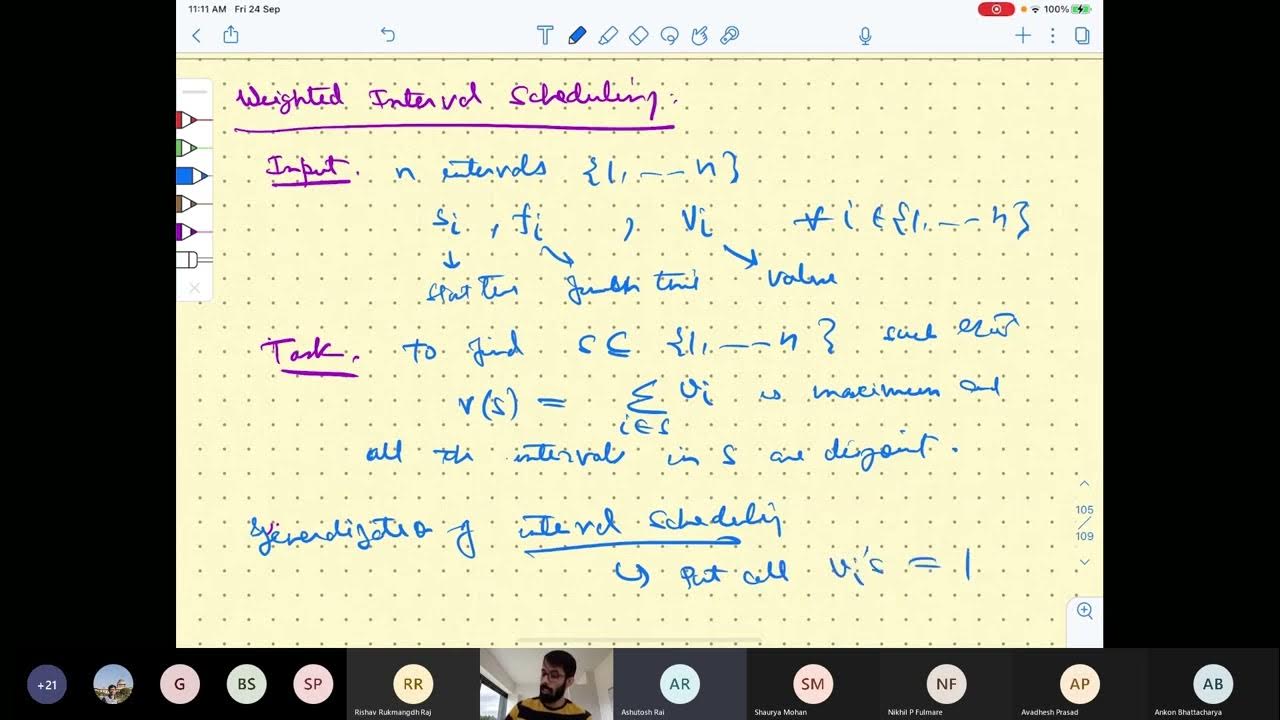 11:11 AM Fri 24 Sep
100%
Weighted Interval Scheduling:
Input. n intervals {1, --- n}
si, fi, vi ∀ i ∈ {1, --- n}
start time finish time value
Task. To find S ⊆ {1, --- n} such that
v(S) = ∑ vi is maximum and
i ∈ S
all the intervals in S are disjoint.
Generalization of interval scheduling
↳ Put all vi's = 1
105
109
+21
G
BS
SP
RR
AR
SM
NF
AP
AB
Rishav Rukmangdh Raj
Ashutosh Rai
Shaurya Mohan
Nikhil P Fulmare
Avadhesh Prasad
Ankon Bhattacharya